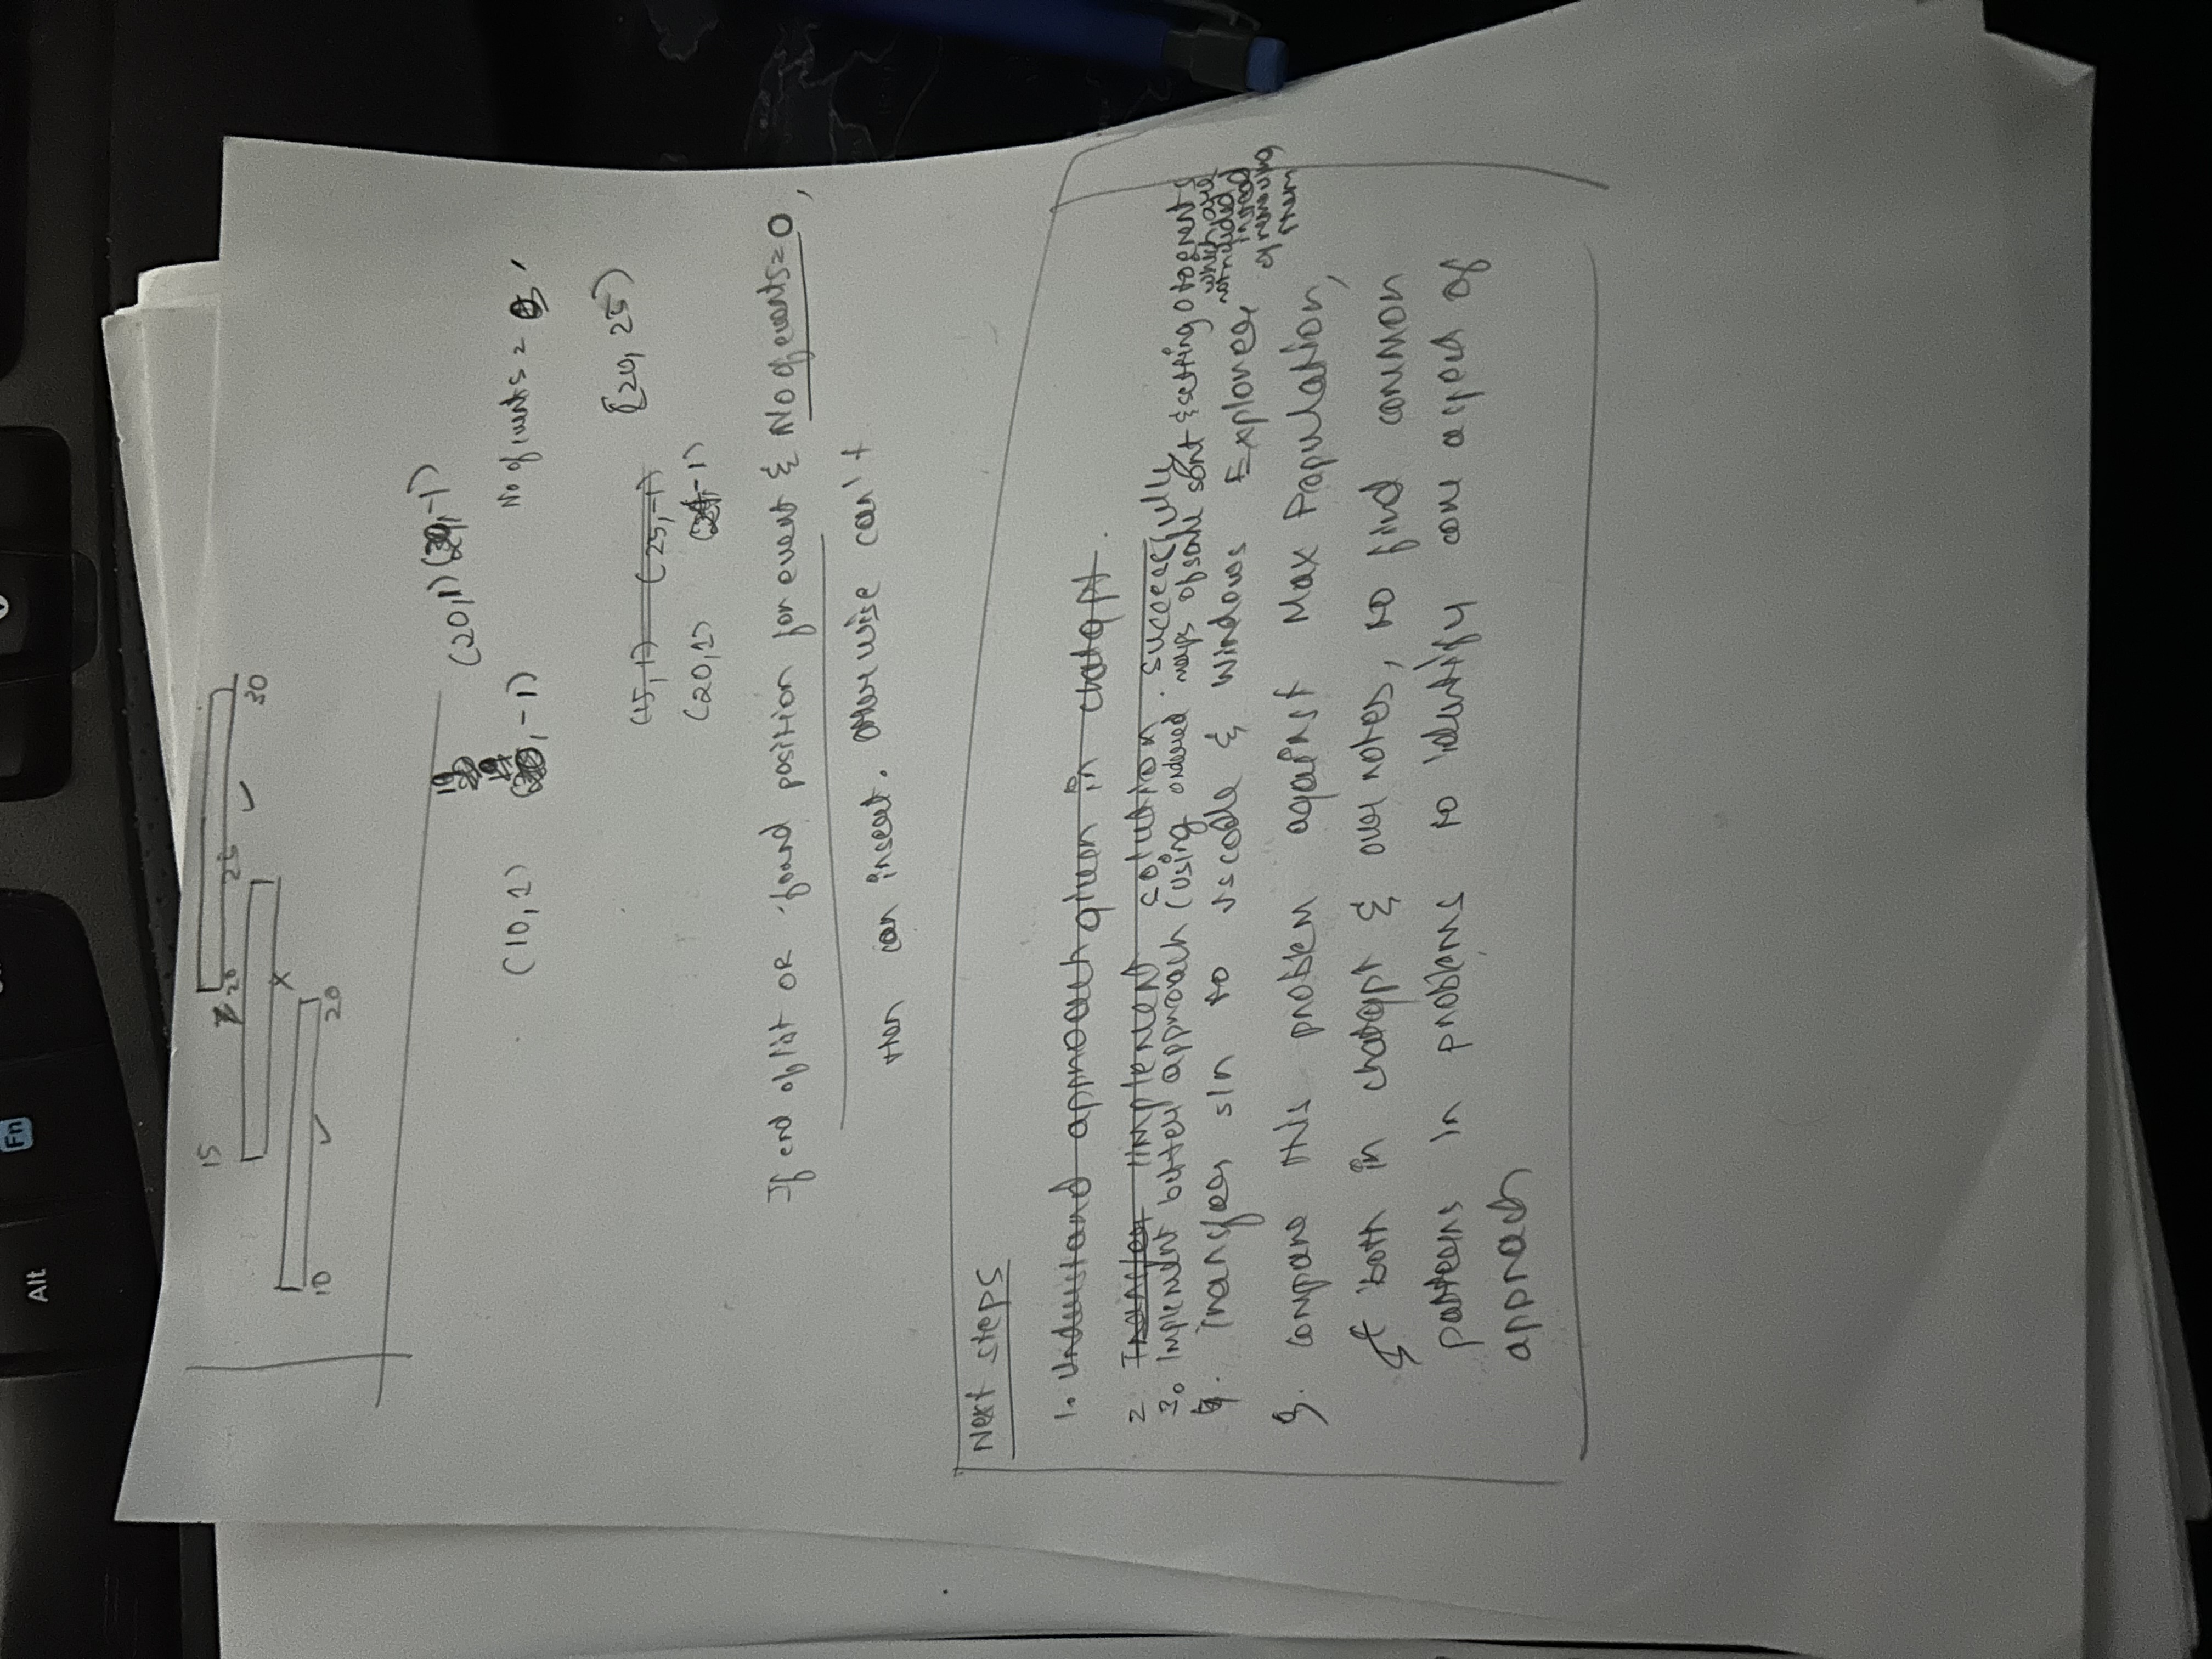 Alt
Fn
15
20
25
30
10
20
19
(20,1) (29,-1)
19
(10,1) ( ,-1)
No of events =
[20, 25)
(15,1) (25,-1)
(20,1) (24,-1)
If end of list OR found position for event & No of events=0,
then can insert. Otherwise can't
Next steps
1. Understand approach given in chatgpt.
2. Transfer implement solution. successfully
3. Implement better approach (using ordered maps of some sort & setting 0 to events
which are
not needed
instead
of removing
them
4. Transfer sln to vscode & Windows Explorer
5. compare this problem against Max Population,
both in chatgpt & over notes, to find common
patterns in problems to identify core aspect of
approach